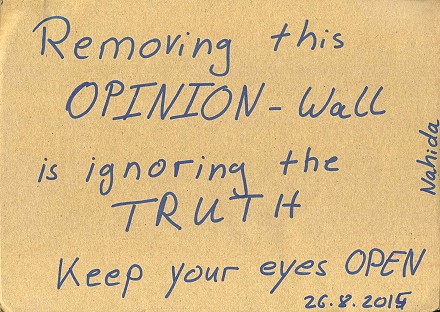 Removing this
OPINION-Wall
is ignoring the
TRUTH
Keep your eyes OPEN
26.8.2015
Nahida